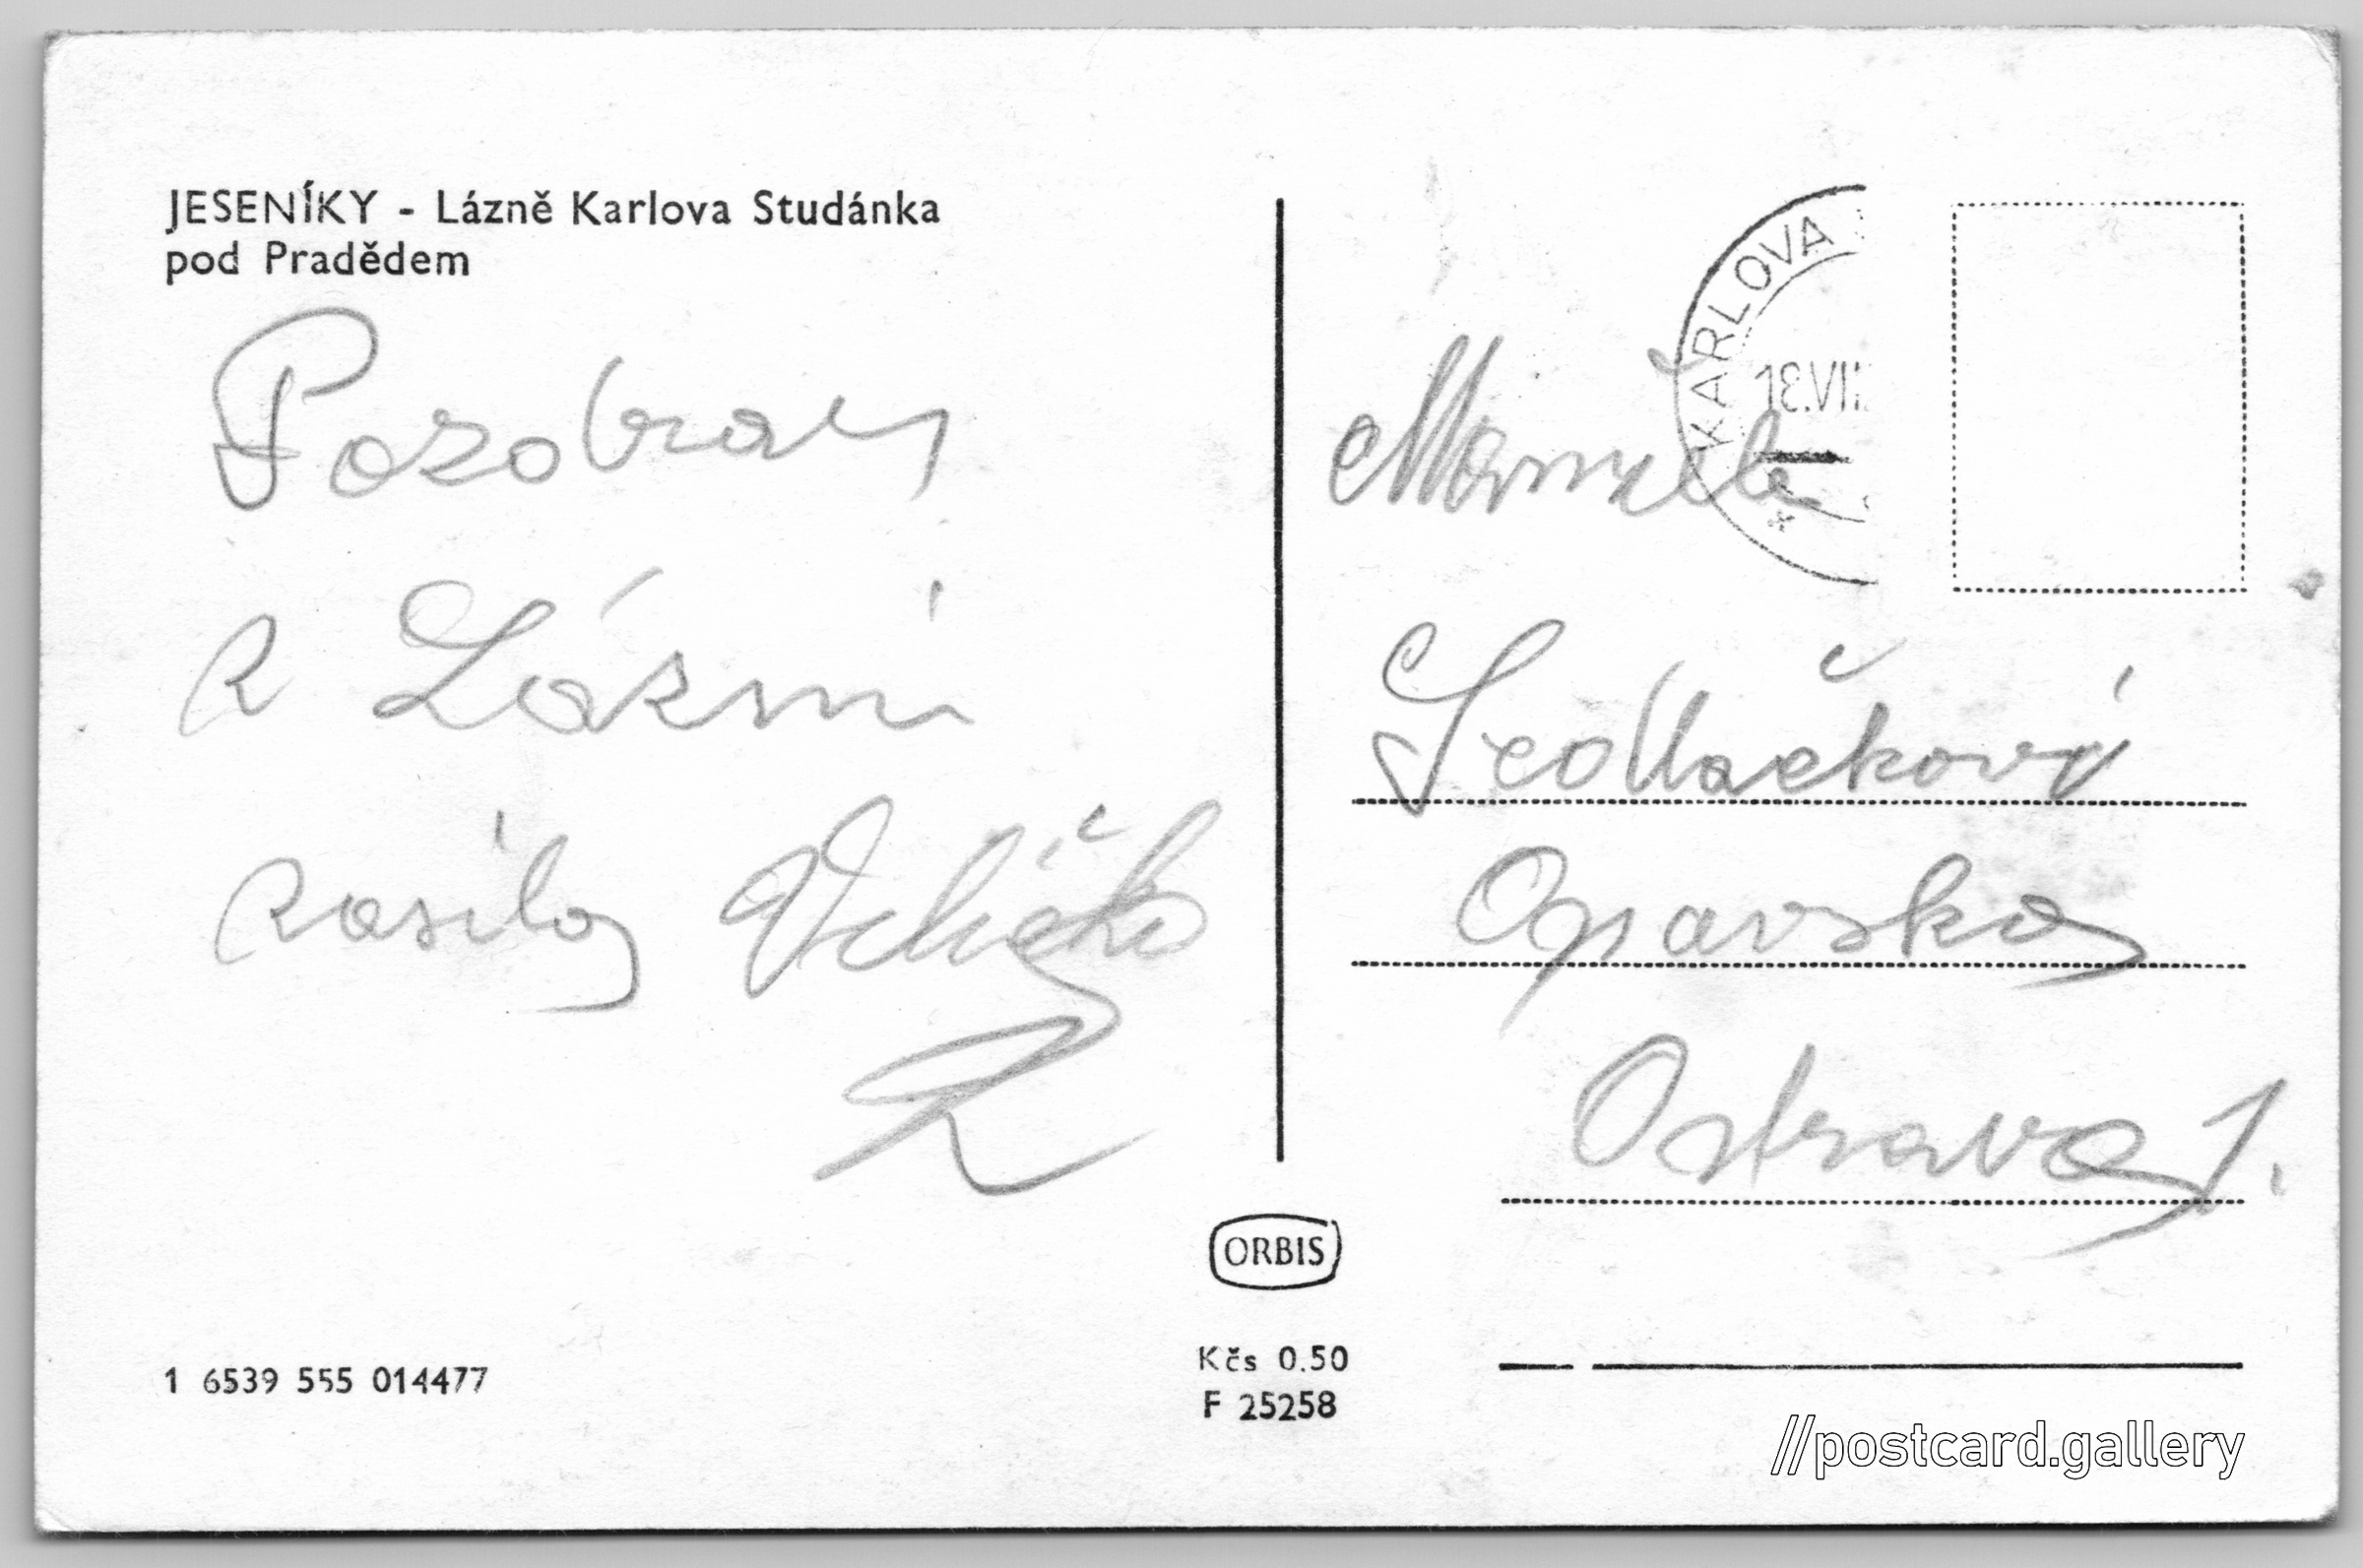 JESENÍKY - Lázně Karlova Studánka
pod Pradědem
Pozdrav
z Lázní
zasílá
KARLOVA
18.VII
Manželé
Sedláčkovi
Opavská
Ostrava 1.
ORBIS
Kčs 0.50
F 25258
1 6539 555 014477
//postcard.gallery